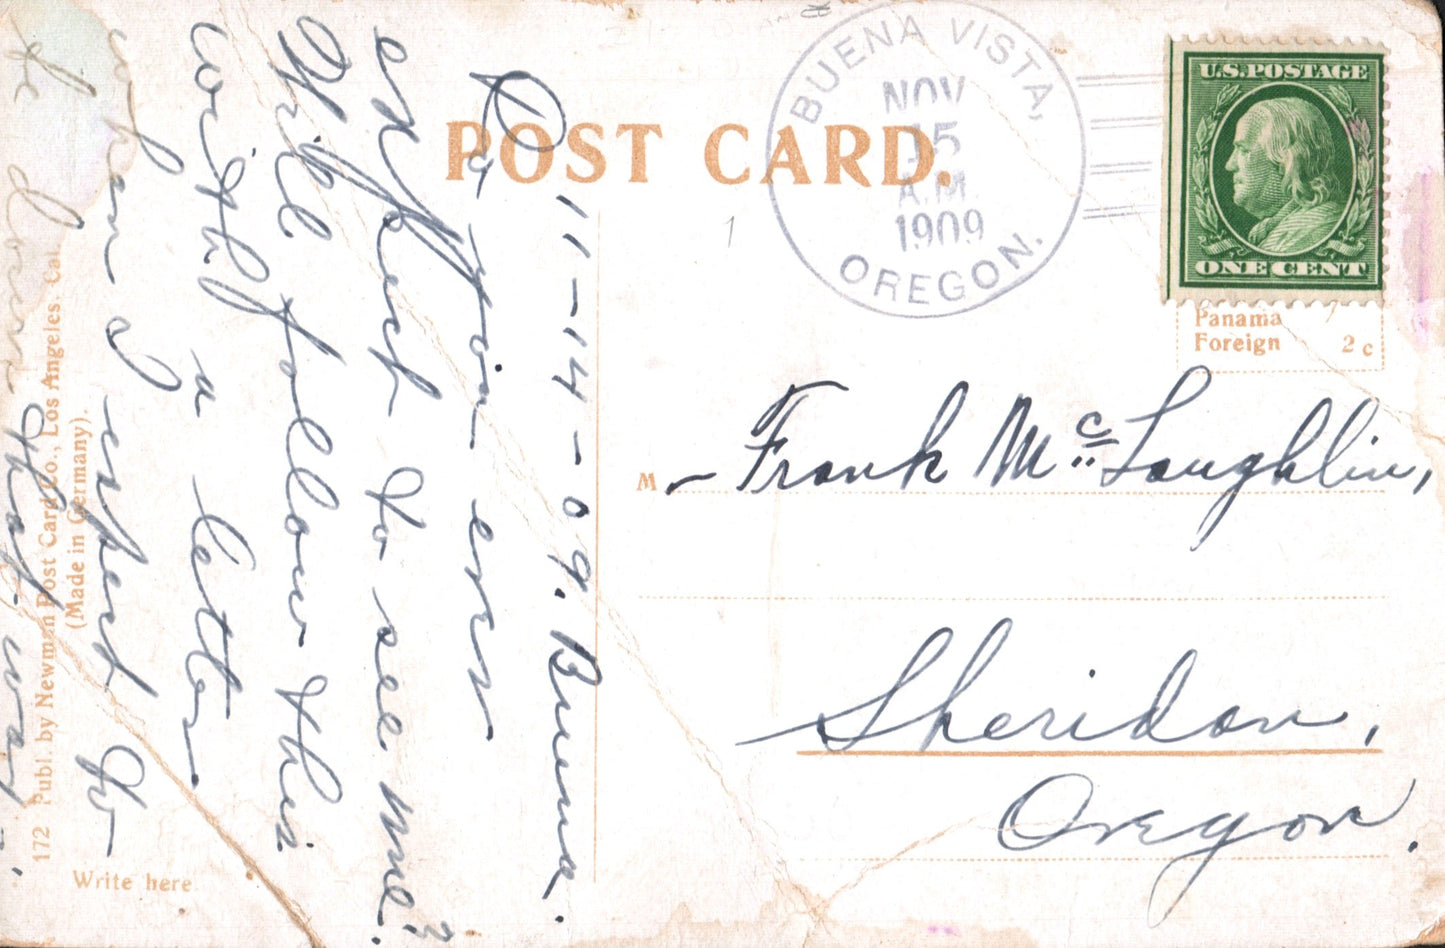 POST CARD.
BUENA VISTA,
NOV
15
A.M.
1909
OREGON.
U.S. POSTAGE
ONE CENT
Panama
Foreign 2c
M - Frank Mc Loughlin,
Sheridan,
Oregon.
11-14-09. Buena.
Do you ever
expect to see me?
Will follow this
with a letter
when I expect to
be down that way.
172 Publ. by Newman Post Card Co., Los Angeles, Cal.
(Made in Germany).
Write here